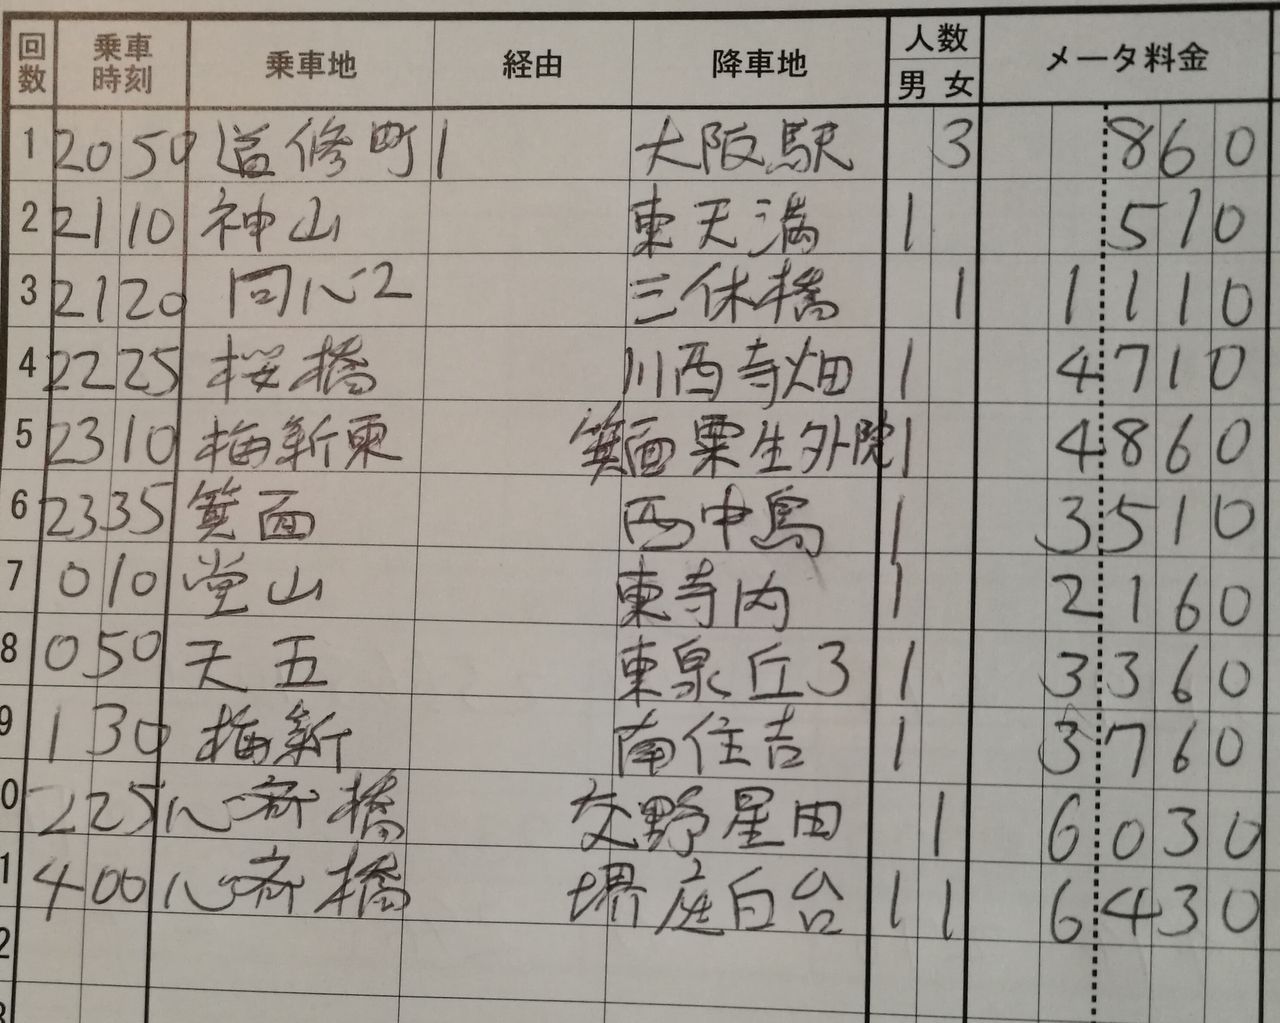 回数 乗車時刻 乗車地 経由 降車地 人数 男 女 メータ料金
1 20 50 道修町1 大阪駅 3 860
2 21 10 神山 東天満 1 510
3 21 20 同心2 三休橋 1 1110
4 22 25 桜橋 川西寺畑 1 4710
5 23 10 梅新東 箕面粟生外院 1 4860
6 23 35 箕面 西中島 1 3510
7 0 10 堂山 東寺内 1 2160
8 0 50 天五 東泉丘3 1 3360
9 1 30 梅新 南住吉 1 3760
0 2 25 心斎橋 交野星田 1 6030
1 4 00 心斎橋 堺庭白台 1 1 6430
2